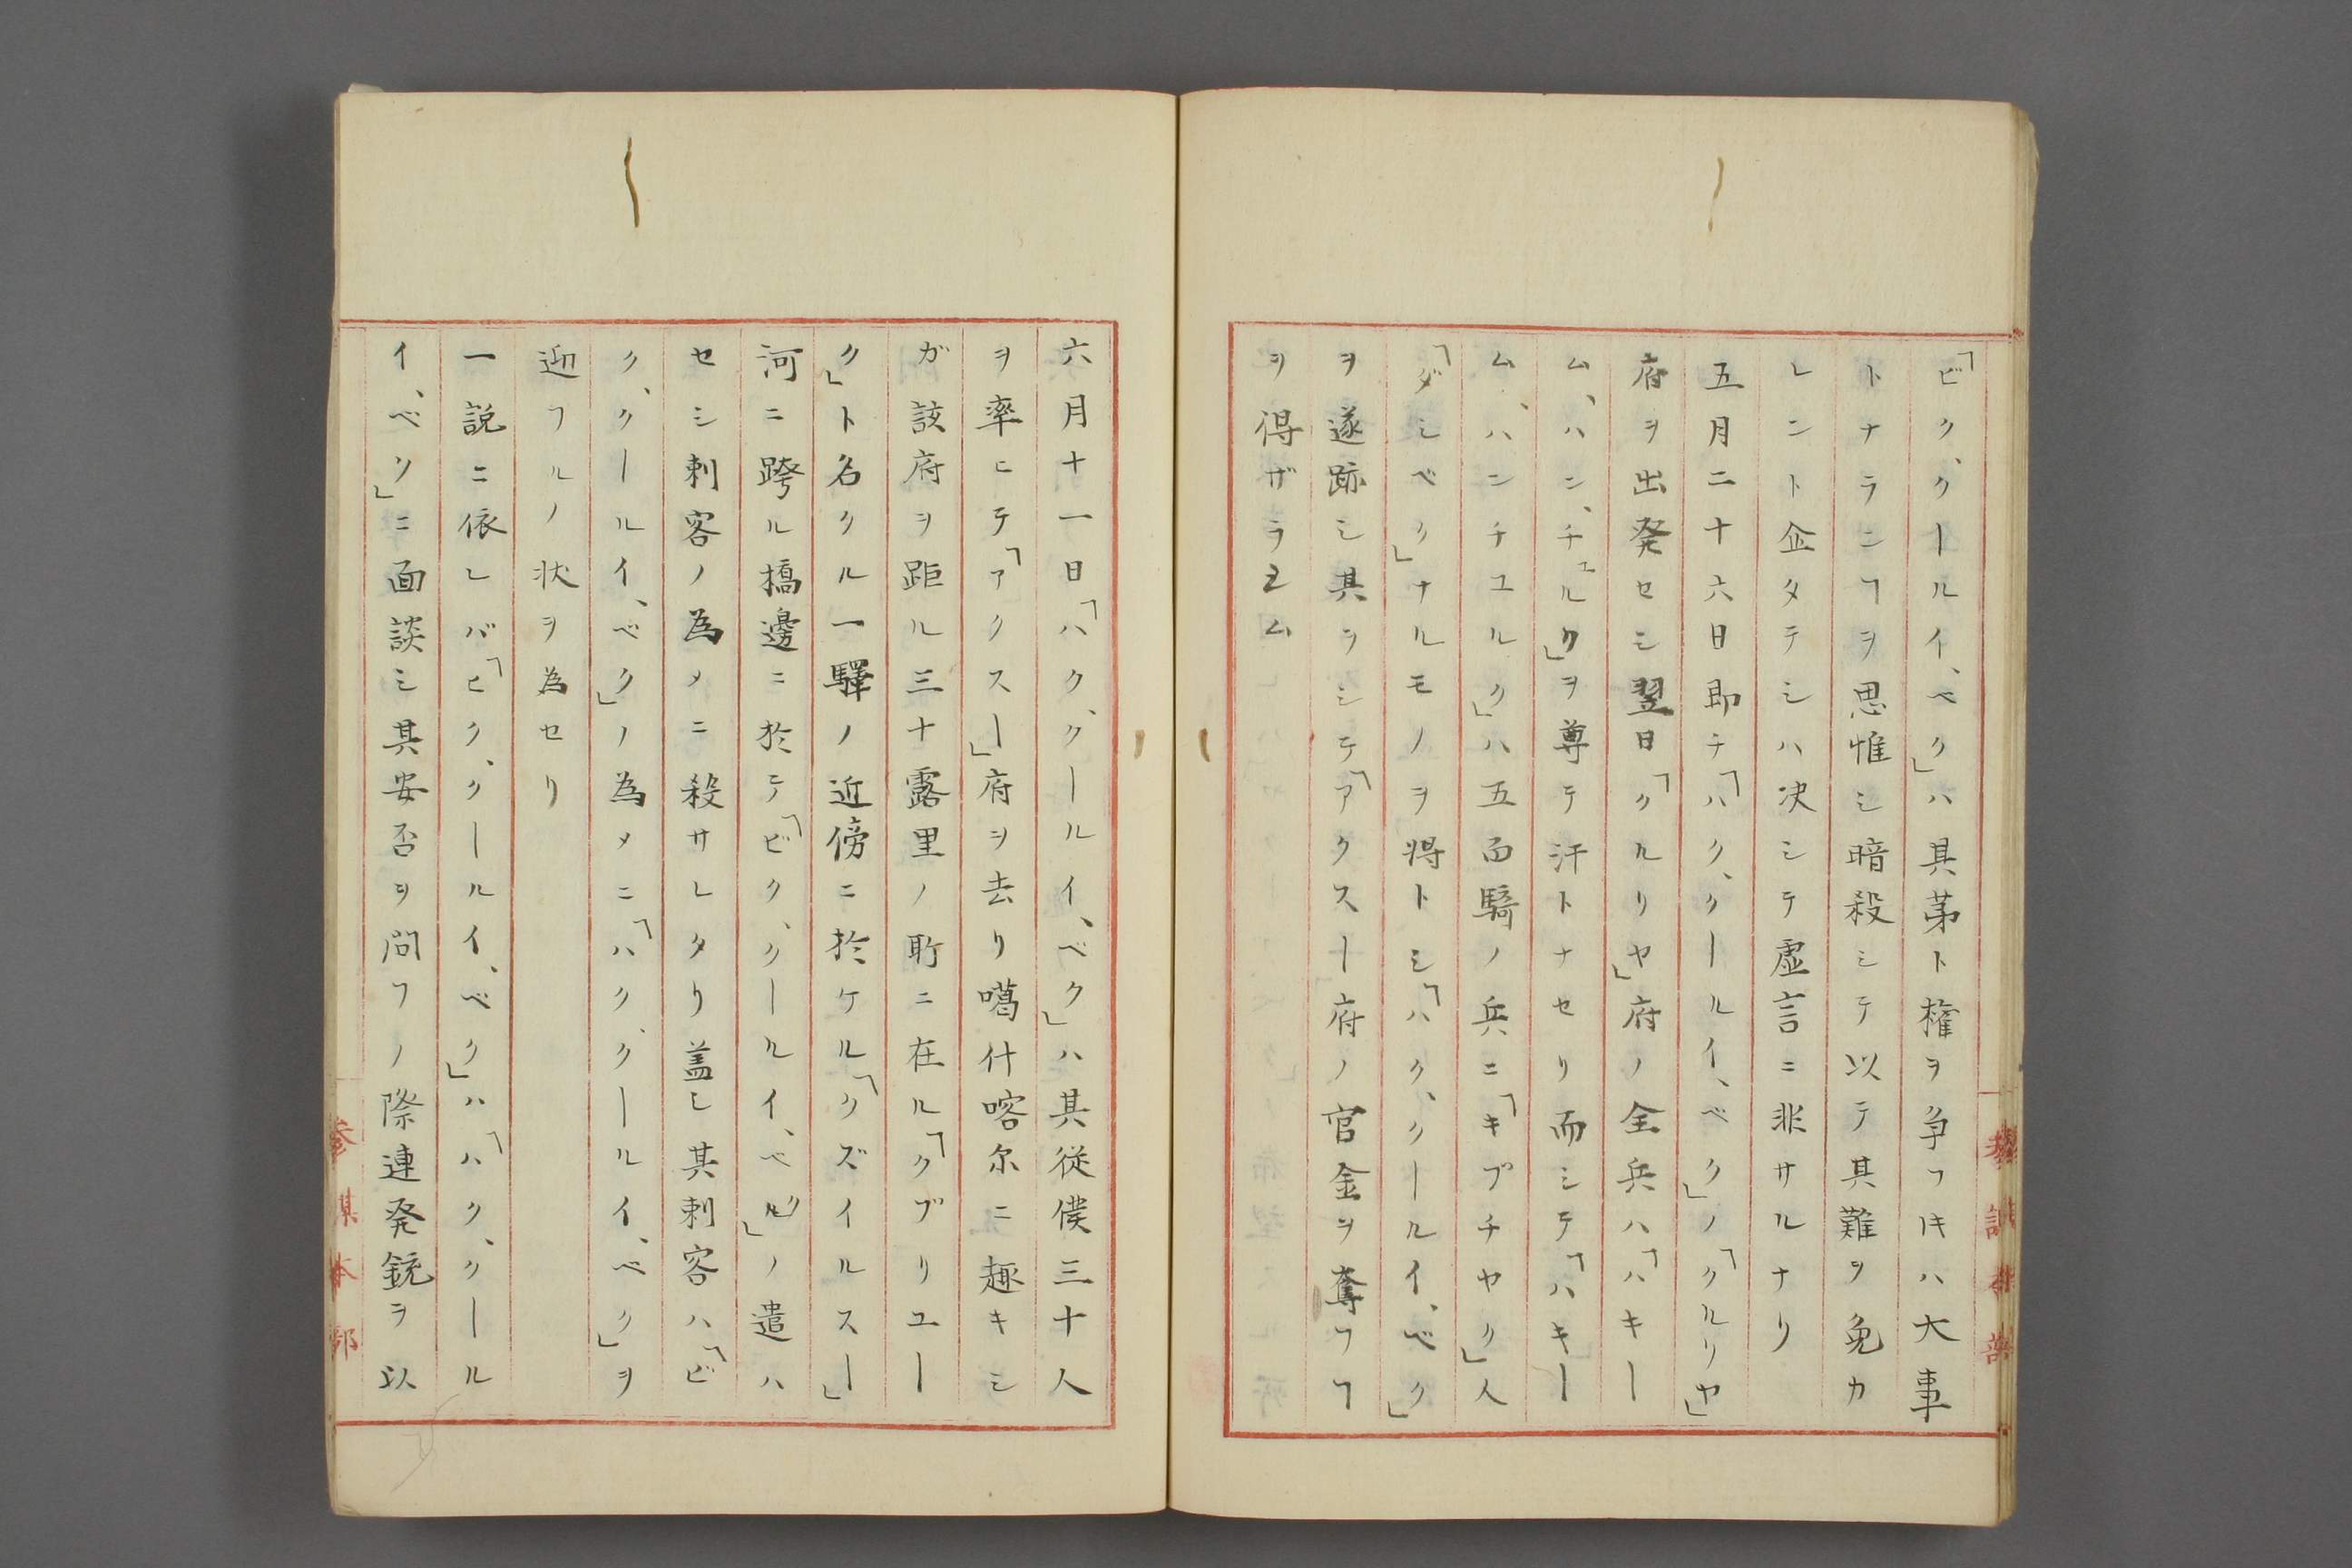 「ビク、クールイ、ベク」ハ其苐ト権ヲ争フ𪜈ハ大事
トナランヿヲ思惟シ暗殺シテ以テ其難ヲ免カ
レント企タテシハ决シテ虚言ニ非サルナリ
五月二十六日即チ「ハク、クールイ、ベク」ノ「クルリヤ」
府ヲ出発セシ翌日「クルリヤ」府ノ全兵ハ「ハキー
ム、ハン、チェルク」ヲ尊テ汗トナセリ而シテ「ハキー
ム、ハンチユルク」ハ五百騎ノ兵ニ「キプチヤク」人
「ダシベク」ナルモノヲ将トシ「ハク、クールイ、ベク」
ヲ遂跡シ其ヲシテ「アクスー府ノ官金ヲ奪フヿ
ヲ得ザラシム
六月十一日「ハク、クールイ、ベク」ハ其従僕三十人
ヲ率ヒテ「アクスー」府ヲ去リ噶什喀尔ニ趣キシ
ガ該府ヲ距ル三十露里ノ所ニ在ル「クブリユー
ク」ト名クル一驛ノ近傍ニ於ケル「クズイルスー」
河ニ跨ル橋邊ニ於テ「ビク、クールイ、ベク」ノ遣ハ
セシ刺客ノ為メニ殺サレタリ盖シ其刺客ハ「ビ
ク、クールイ、ベク」ノ為メニ「ハク、クールイ、ベク」ヲ
迎フルノ状ヲ為セリ
一説ニ依レバ「ビク、クールイ、ベク」ハ「ハク、クール
イ、ベク」ニ面談シ其安否ヲ問フノ際連発銃ヲ以
參謀本部
參謀本部